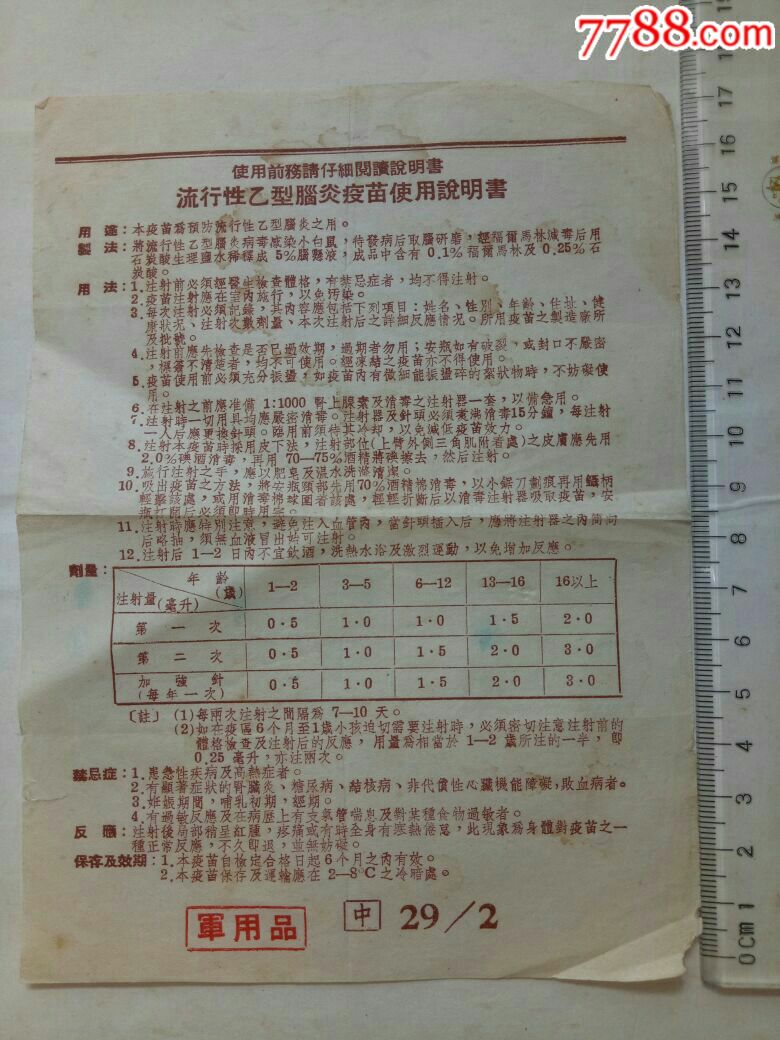 7788.com
使用前務請仔細閱讀說明書
流行性乙型腦炎疫苗使用說明書
用途：本疫苗爲預防流行性乙型腦炎之用。
製法：將流行性乙型腦炎病毒感染小白鼠，待發病后取腦研磨，經福爾馬林減毒后用
石炭酸生理鹽水稀釋成5%腦懸液，成品中含有0.1%福爾馬林及0.25%石
炭酸。
用法：1.注射前必須經醫生檢查體格，有禁忌症者，均不得注射。
2.疫苗注射應在室內施行，以免汚染。
3.每次注射必須記錄，其內容應包括下列項目：姓名、性別、年齡、住址、健
康狀况、注射次數劑量、本次注射后之詳細反應情况。所用疫苗之製造廠所
及批號。
4.注射前應先檢查是否已過效期，過期者勿用；安瓶如有破裂、或封口不嚴密
，標簽不清楚者，均不可使用。經凍結之疫苗亦不得使用。
5.疫苗使用前必須充分振盪，如疫苗內有微細能振盪碎的絮狀物時，不妨礙使
用。
6.在注射之前應准備1:1000腎上腺素及消毒之注射器一套，以備急用。
7.注射時一切用具均應嚴密消毒。注射器及針頭必須煑沸消毒15分鐘，每注射
一人后應更換針頭。臨用前須待其冷却，以免減低疫苗效力。
8.注射本疫苗時採用皮下法，注射部位(上臂外側三角肌附着處)之皮膚應先用
2.0%碘酒消毒，再用70—75%酒精將碘擦去，然后注射。
9.施行注射之手，應以肥皂及溫水洗滌清潔。
10.吸出疫苗之方法，將安瓶頸部先用70%酒精棉消毒，以小鋸刀劃痕再用鑷柄
輕擊該處，或用消毒棉球圍着該處，輕輕折斷后以消毒注射器吸取疫苗，安
瓶打開后必須即時用完。
11.注射時應特別注意，避免注入血管內，當針頭插入后，應將注射器之內筒向
后略抽，須無血液冒出始可注射。
12.注射后1—2日內不宜飲酒，洗熱水浴及激烈運動，以免增加反應。
劑量：
年齡(歲) 注射量(毫升) 1—2 3—5 6—12 13—16 16以上
第一次 0·5 1·0 1·0 1·5 2·0
第二次 0·5 1·0 1·5 2·0 3·0
加強針(每年一次) 0·5 1·0 1·5 2·0 3·0
〔註〕(1)每兩次注射之間隔爲7—10天。
(2)如在疫區6個月至1歲小孩迫切需要注射時，必須密切注意注射前的
體格檢查及注射后的反應，用量爲相當於1—2歲所注的一半，即
0.25毫升，亦注兩次。
禁忌症：1.患急性疾病及高熱症者。
2.有顯著症狀的腎臟炎、糖尿病、結核病、非代償性心臟機能障礙，敗血病者。
3.姙娠期間，哺乳初期，經期。
4.有過敏反應及在病歷上有支氣管喘息及對某種食物過敏者。
反應：注射後局部稍呈紅腫，疼痛或有時全身有寒熱倦怠，此現象爲身體對疫苗之一
種正常反應，不久即退，並無妨礙。
保存及效期：1.本疫苗自檢定合格日起6個月之內有效。
2.本疫苗保存及運輸應在2—8°C之冷暗處。
軍用品 中 29/2
0Cm 1 2 3 4 5 6 7 8 9 10 11 12 13 14 15 16 17 18 19